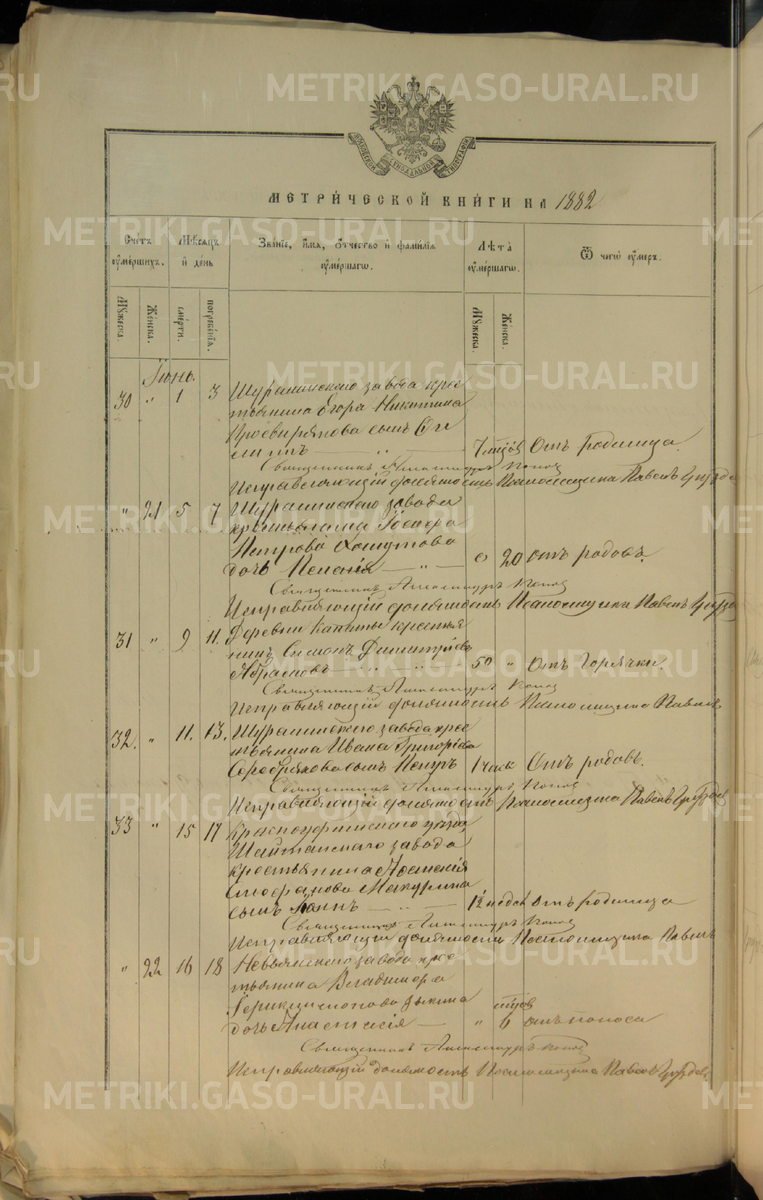 METRIKI.GASO-URAL.RU
МЕТРИЧЕСКОЙ КНИГИ НА 1882
Счетъ умершихъ.
Мѣсяцъ и день
Званіе, имя, отчество и фамилія умершаго.
Лѣта умершаго.
Ѿ чегѡ умеръ.
Мужеска.
Женска.
смерти.
погребенія.
Мужеска.
Женска.
Іюнь.
30 " 1 3 Шуралинскаго завода кре
стьянина Егора Никитина
сынъ
7 мцовъ Отъ родимца.
Священникъ Александръ Попов
Исправляющій должность Псаломщика Павелъ Груздев
" 21 5 7 Шуралинскаго завода
крестьянина
Петрова Хомутова
дочь Пелагія — " — 20 отъ родовъ.
Священникъ Александръ Попов
Исправляющій должность Псаломщика Павелъ Груздев
31 " 9 11. Деревни крестья
нинъ Симеонъ Димитріевъ
Абрамовъ 50 " Отъ Горячки.
Священникъ Александръ Попов
Исправляющій должность Псаломщика Павелъ
32. " 11. 13. Шуралинскаго завода кре
стьянина Ивана Григорьева
Серебрякова сынъ Петръ 1 часъ Отъ родовъ.
Священникъ Александръ Попов
Исправляющій должность Псаломщика Павелъ Груздев
33 " 15 17 Красноуфимскаго уѣзда,
Шайтанскаго завода
крестьянина
Стефанова Макурина
сынъ Іоаннъ — " — 12 недѣл Отъ родимца
Священникъ Александръ Попов
Исправляющій должность Псаломщика Павелъ
" 22 16 18 Невьянскаго завода кре
стьянина Владимира
дочь Анастасія — " 6 мцов отъ поноса
Священникъ Александръ Попов
Исправляющій должность Псаломщика Павелъ Груздев